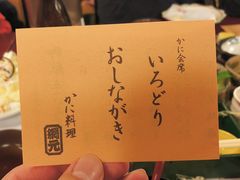 かに会席
いろどり
おしながき
かに料理
網元